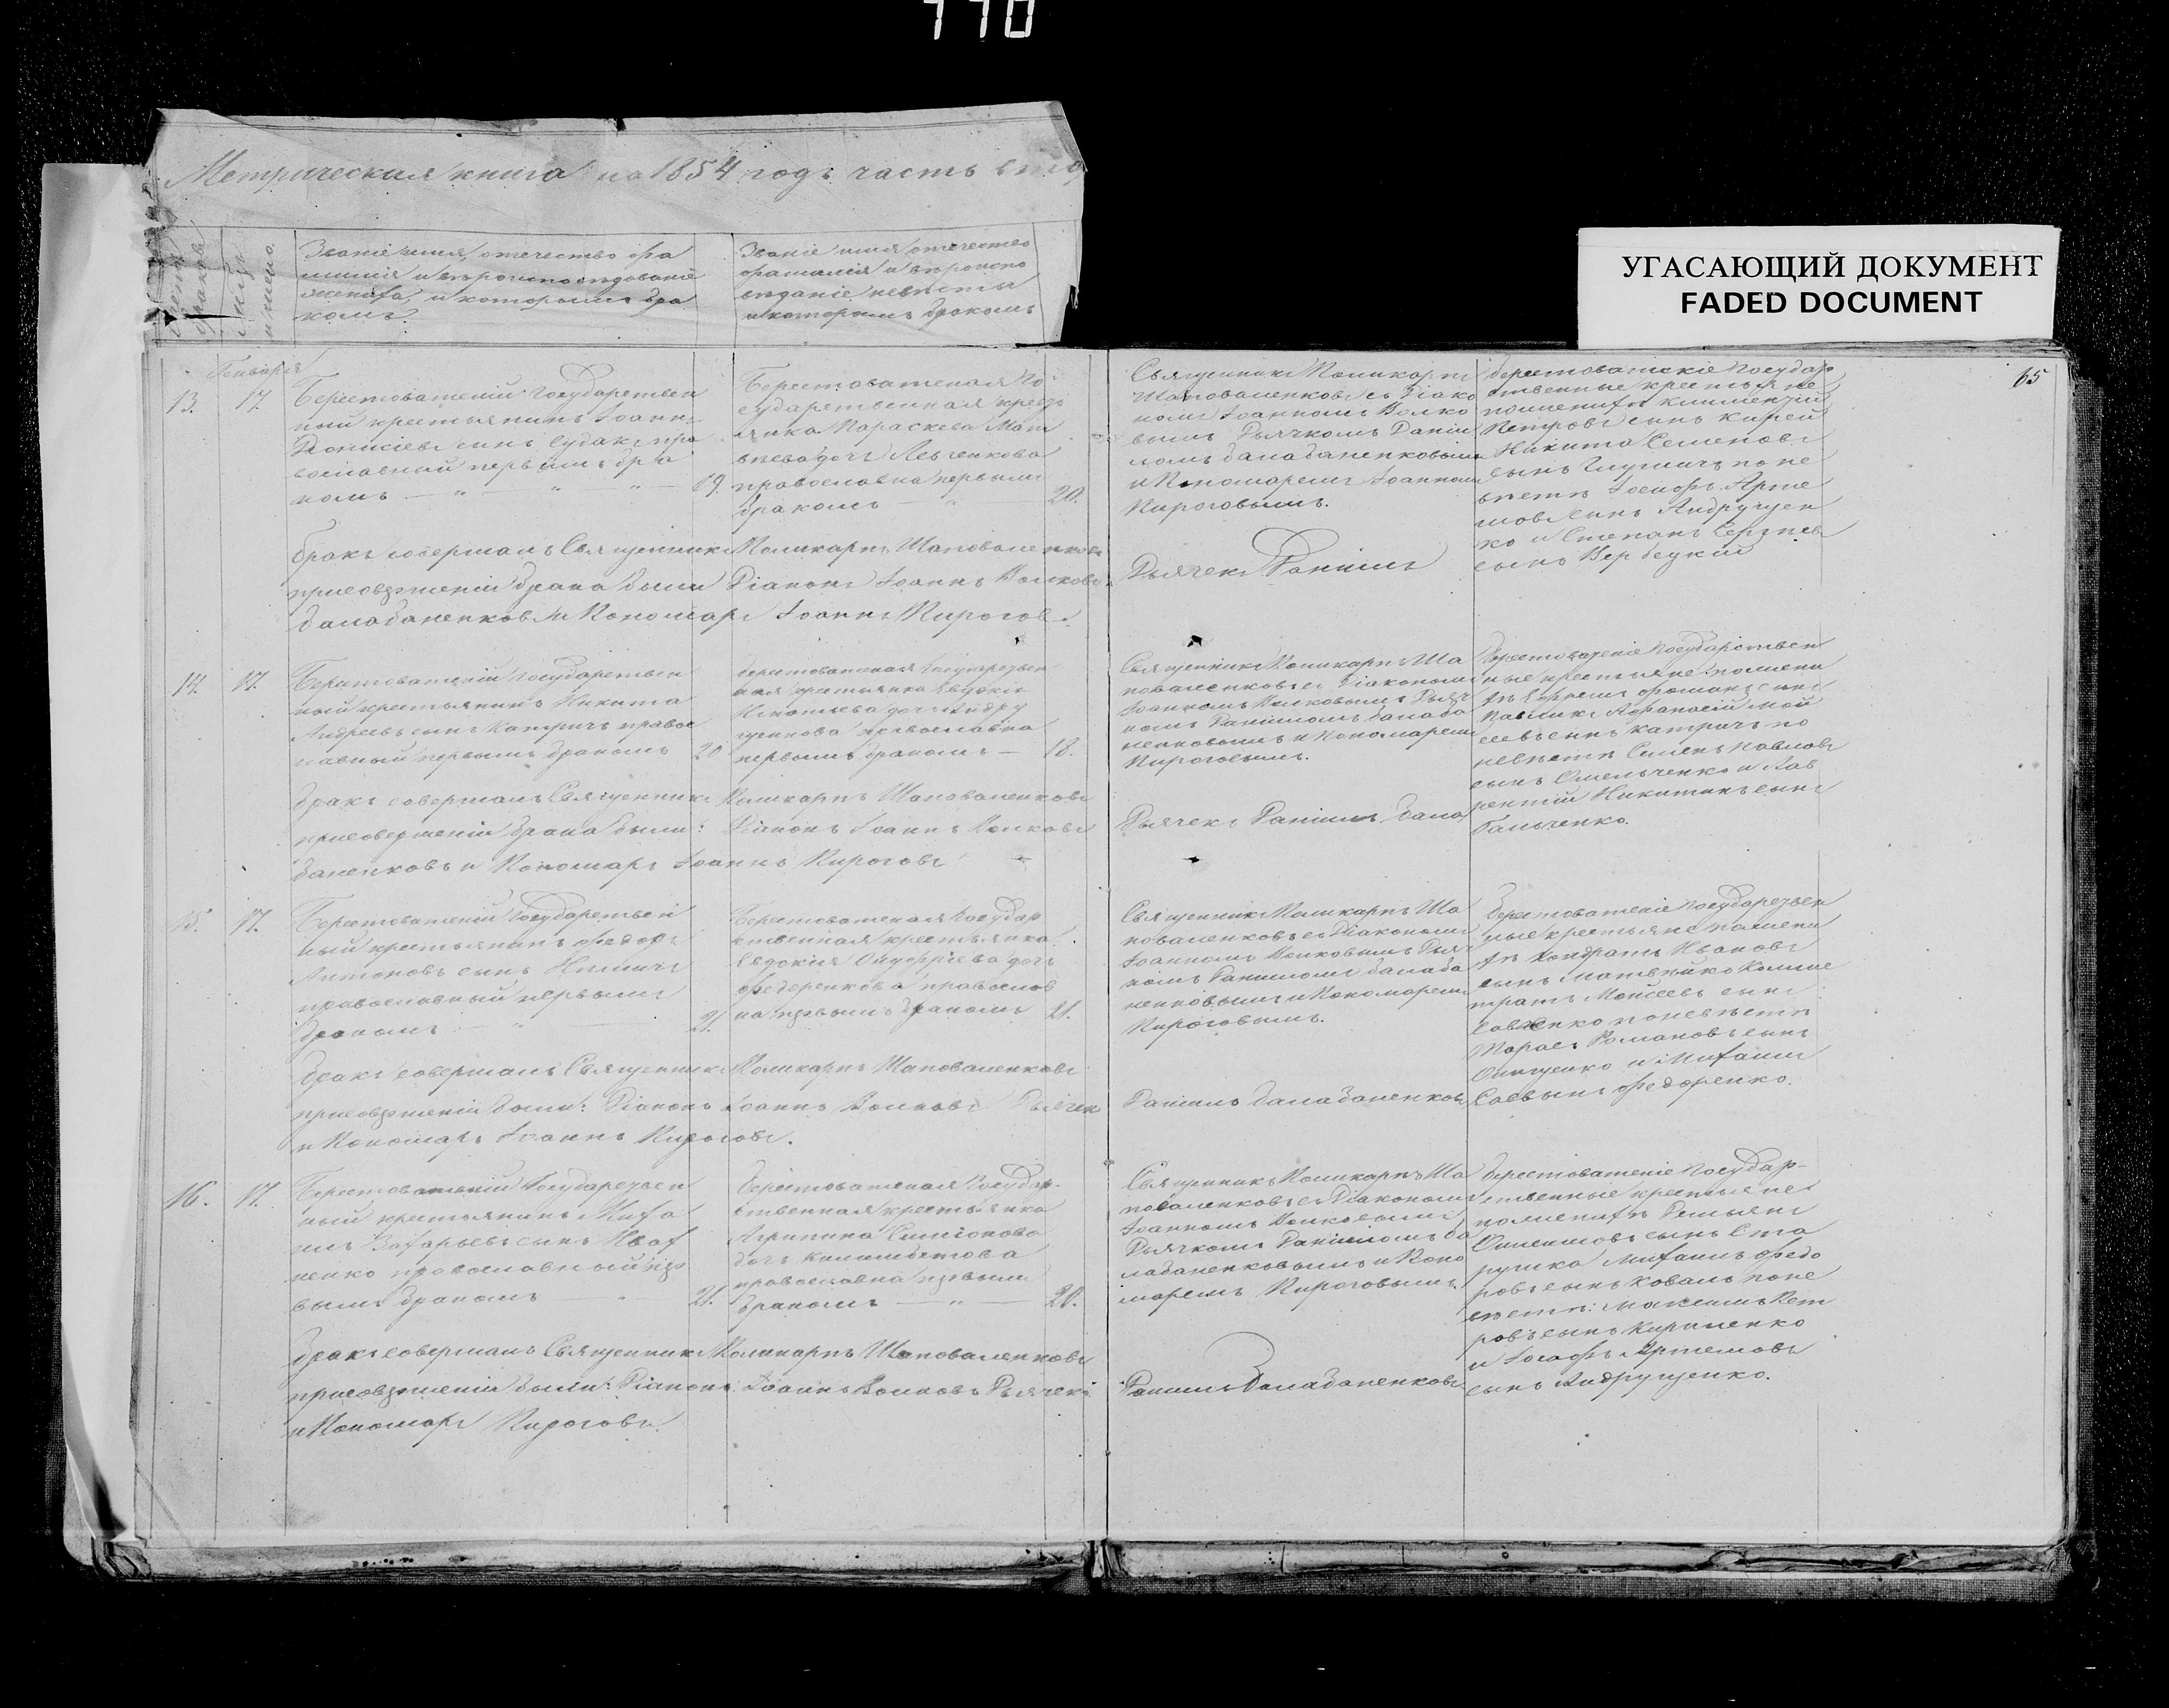 Метрическая книга на 1854 годъ часть втор
Счетъ браковъ
Мѣсяцъ и число.
Званіе имя, отечество фа
милія и вѣроисповѣданіе
жениха, и которымъ бра
комъ.
Званіе имя отечество
фамилія и вѣроиспо
вѣданіе невѣсты
и которымъ бракомъ
УГАСАЮЩИЙ ДОКУМЕНТ
FADED DOCUMENT
65
Генваря
13. 17.
Берестоватскій Государствен
ный крестьянинъ Іоаннъ
Діонисіевъ сынъ Судакъ пра
вославный первымъ бра
комъ 19.
Берестоватская Го
сударственная кресть
янка Параскева Мат
вѣева дочь Левченкова
православна первымъ
бракомъ 20.
Священникъ Поликарпъ
Шаповаленковъ съ Діако
номъ Іоанномъ Волко
вымъ Дьячкомъ Даніи
ломъ Балабаненковымъ
и Пономаремъ Іоанномъ
Пироговымъ.
Берестоватскіе Государ
ственные крестьяне
по женихѣ Климентій
Петровъ сынъ Кирей
Никита Семеновъ
сынъ по не
вѣстѣ Іосифъ Арте
мовъ сынъ Андрущен
ко и Степанъ Сергѣевъ
сынъ Вербецкій
Бракъ совершалъ Священникъ Поликарпъ Шаповаленковъ
при совершеніи брака были Діаконъ Іоаннъ Волковъ Дьячекъ Даніилъ
Балабаненковъ и Пономарь Іоаннъ Пироговъ.
14. 17.
Берестоватскій Государствен
ный крестьянинъ Никита
Андреевъ сынъ Катричъ правос
лавный первымъ бракомъ 20
Берестоватская Государствен
ная крестьянка Евдокія
Игнатьева дочь Андру
щенкова православна
первымъ бракомъ 18.
Священникъ Поликарпъ Ша
поваленковъ съ Діакономъ
Іоанномъ Волковымъ Дьяч
комъ Данииломъ Балаба
ненковымъ и Пономаремъ
Пироговымъ.
Берестоватскіе Государствен
ные крестьяне: по жени
хѣ Ефремъ сынъ
Павликъ Афанасій Мой
сеевъ сынъ Катричъ по
невѣстѣ Семенъ Павловъ
сынъ Омельченко и Лав
рентій Никитинъ сынъ
Гальченко.
Бракъ совершалъ Священникъ Поликарпъ Шаповаленковъ
при совершеніи брака были: Діаконъ Іоаннъ Волковъ Дьячекъ Даніилъ Бала
баненковъ и Пономарь Іоаннъ Пироговъ
15. 17.
Берестоватскій Государствен
ный крестьянинъ Федоръ
Антоновъ сынъ
православный первымъ
бракомъ 21.
Берестоватская Государ
ственная крестьянка
Евдокія Онуфріева дочь
Федоренкова православ
на первымъ бракомъ 21.
Священникъ Поликарпъ Ша
поваленковъ съ Діакономъ
Іоанномъ Волковымъ Дьяч
комъ Данииломъ Балаба
ненковымъ и Пономаремъ
Пироговымъ.
Берестоватскіе Государствен
ные крестьяне по жени
хѣ Кондратъ Ивановъ
сынъ Матвѣйко
Мойсеевъ сынъ
Савченко по невѣстѣ
Тарасъ Романовъ сынъ
Онищенко и Михаилъ
Федоренко.
Бракъ совершалъ Священникъ Поликарпъ Шаповаленковъ
при совершеніи были: Діаконъ Іоаннъ Волковъ Дьячекъ Даніилъ Балабаненковъ
и Пономарь Іоаннъ Пироговъ.
16. 17.
Берестоватскій Государствен
ный крестьянинъ Миха
илъ Захарьевъ сынъ Ивах
ненко православный пер
вымъ бракомъ 21.
Берестоватская Государ-
ственная крестьянка
Агрипина Симіонова
дочь
православна первымъ
бракомъ 20.
Священникъ Поликарпъ Ша
поваленковъ съ Діакономъ
Іоанномъ Волковымъ
Дьячкомъ Данииломъ Ба
лабаненковымъ и Поно
маремъ Пироговымъ.
Берестоватскіе Государ-
ственные крестьяне
по женихѣ Демьянъ
сынъ Ста
рушка Михаилъ Федо
ровъ сынъ Коваль по не
вѣстѣ: Максимъ Пет
ровъ сынъ Кириленко
и Іосифъ Артемовъ
сынъ Андрущенко.
Бракъ совершалъ Священникъ Поликарпъ Шаповаленковъ
при совершеніи были: Діаконъ Іоаннъ Волковъ Дьячекъ Даніилъ Балабаненковъ
и Пономарь Пироговъ.